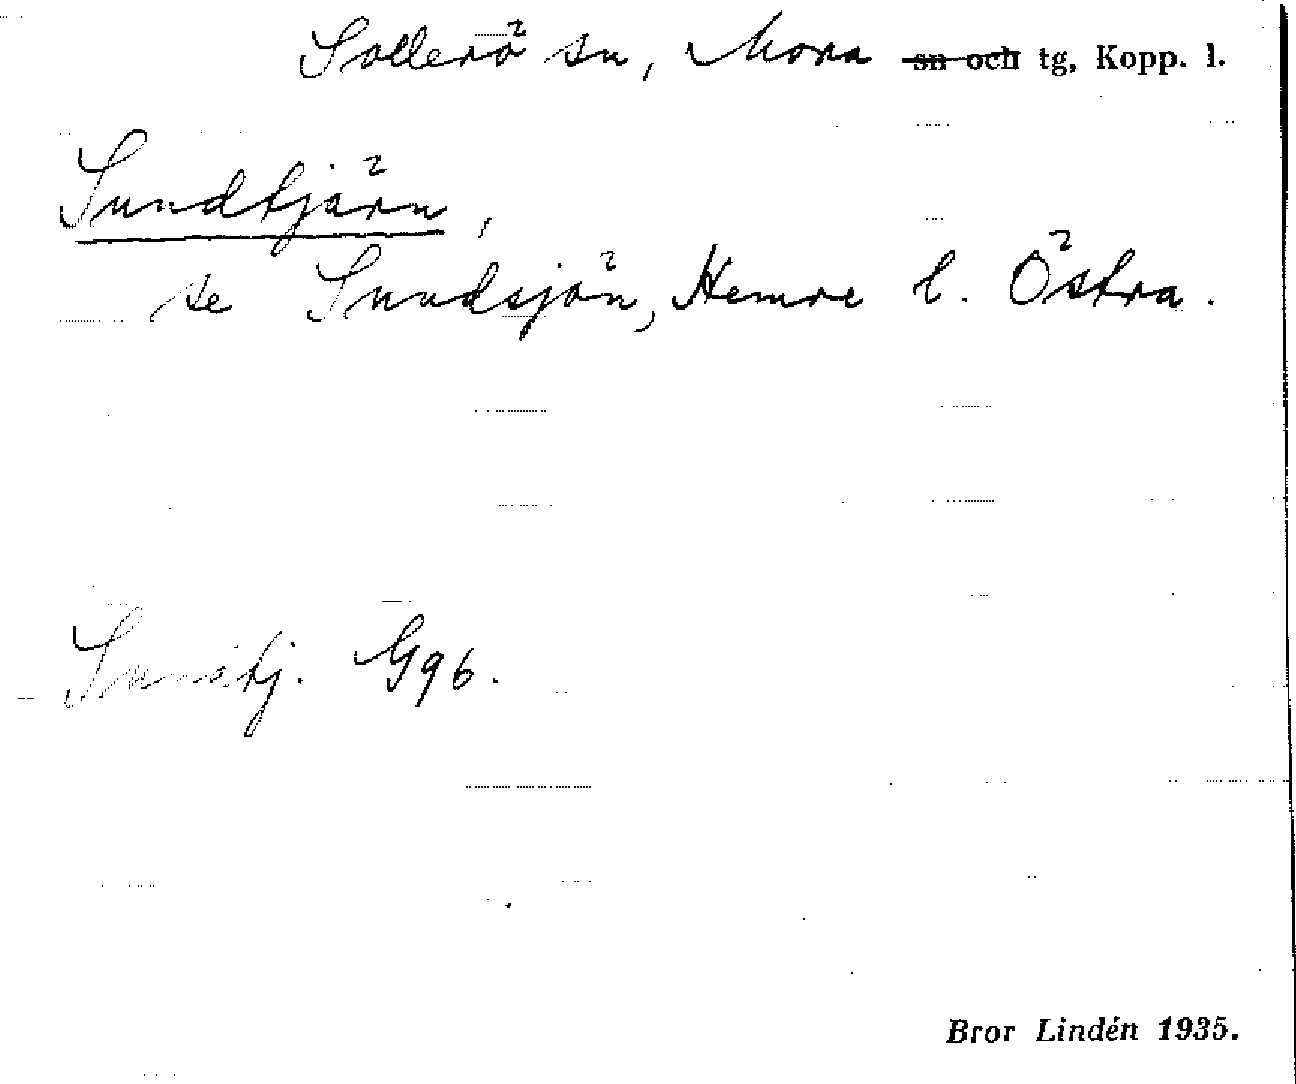 Sollerö sn, Mora sn och tg, Kopp. l.
Sundtjärn,
se Sundsjön, Hemre l. Östra.
Sundtj. G96.
Bror Lindén 1935.